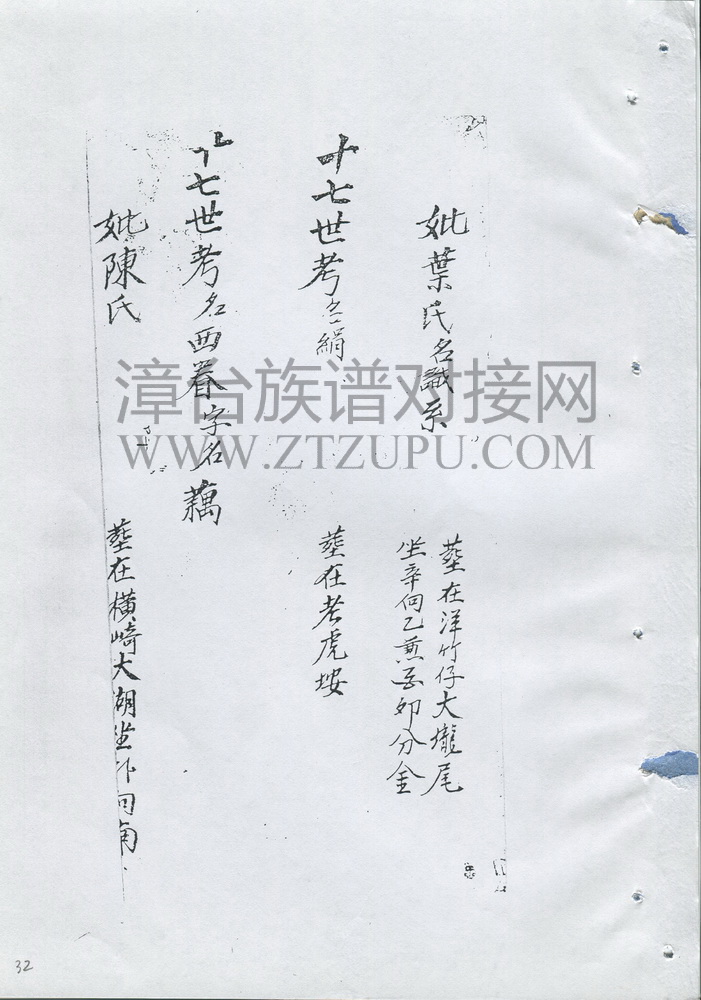 妣葉氏名識系
塟在洋竹仔大壠尾
坐辛向乙兼酉卯分金
十七世考名絹
塟在老虎垵
十七世考名西眷字名藕
妣陳氏
塟在橫崎大湖坐 向
漳台族谱对接网
WWW.ZTZUPU.COM
32